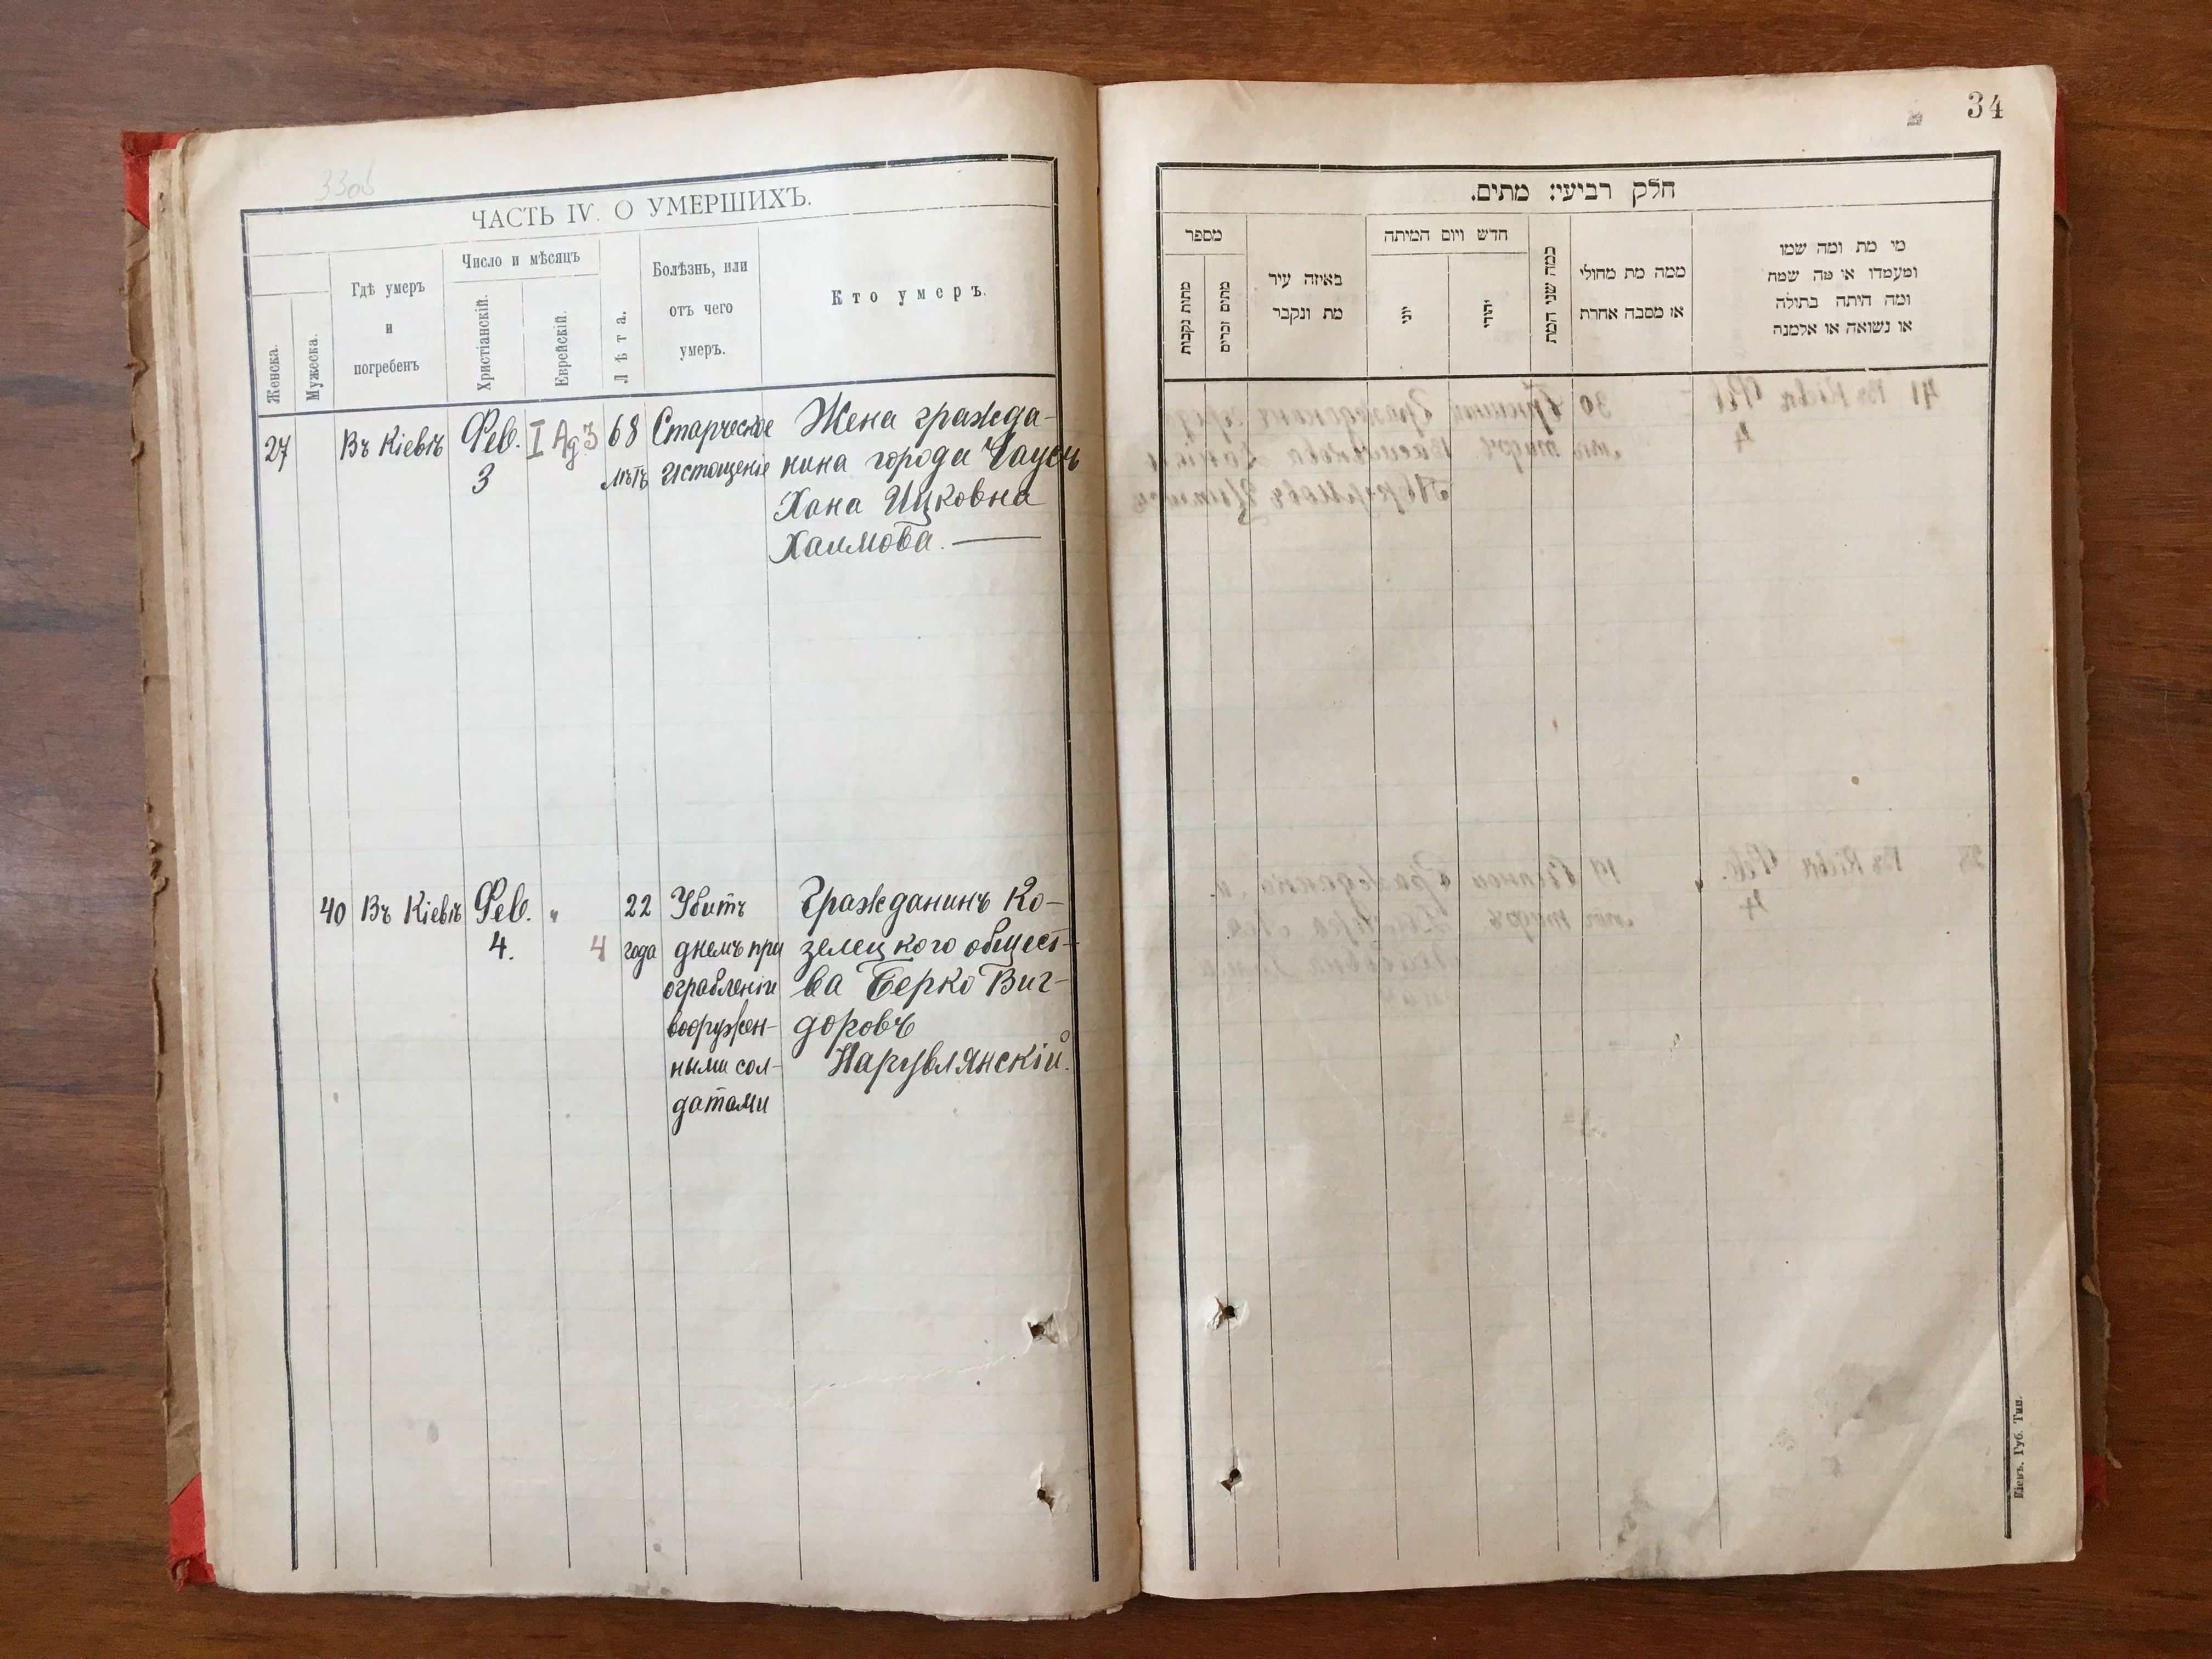 33об
ЧАСТЬ IV. О УМЕРШИХЪ.
Женска.
Мужеска.
Гдѣ умеръ
и
погребенъ
Число и мѣсяцъ
Христіанскій.
Еврейскій.
Лѣта.
Болѣзнь, или
отъ чего
умеръ.
Кто умеръ.
27
Въ Кіевѣ
Фев.
3
I Ад 3
68
лѣтъ
Старческое
истощеніе
Жена гражда-
нина города Чаусъ
Хана Ицковна
Хаимова. —
40
Въ Кіевѣ
Фев.
4.
"
4
22
года
Убитъ
днемъ при
ограбленіи
вооружен-
ными сол-
датами
Гражданинъ Ко-
зелецкого общест-
ва Берко Виг-
доровъ
Нарувлянскій.
34
חלק רביעי: מתים.
מספר
מתות נקבות
מתים זכרים
באיזה עיר
מת ונקבר
חדש ויום המיתה
יוני
יהודי
כמה שני המת
ממה מת מחולי
או מסבה אחרת
מי מת ומה שמו
ומעמדו או מה שמה
ומה היתה בתולה
או נשואה או אלמנה
Кіевъ. Губ. Тип.